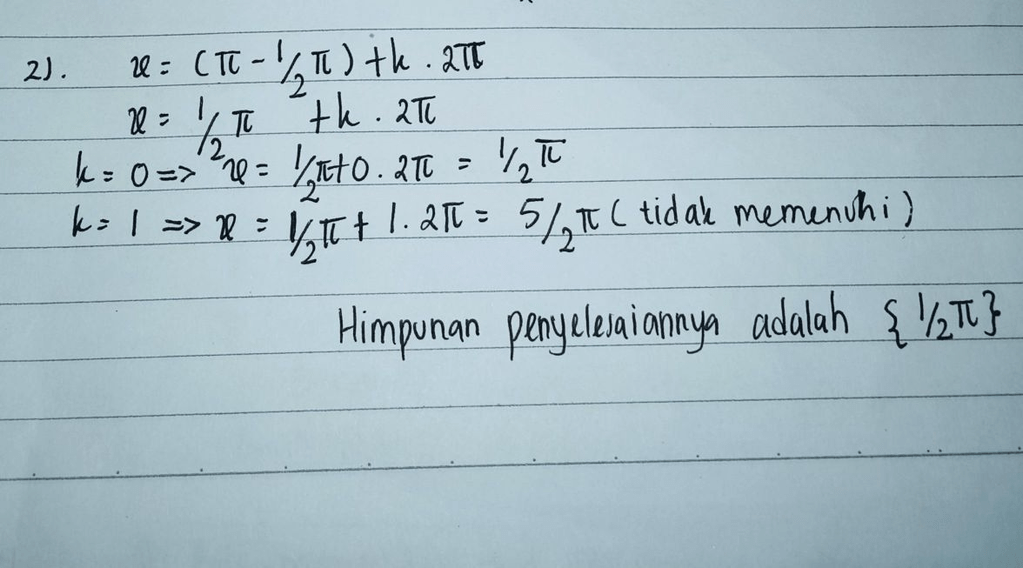 2). x = (π - 1/2 π) + k . 2π
x = 1/2 π + k . 2π
k = 0 => x = 1/2 π + 0 . 2π = 1/2 π
k = 1 => x = 1/2 π + 1 . 2π = 5/2 π (tidak memenuhi)
Himpunan penyelesaiannya adalah {1/2 π}